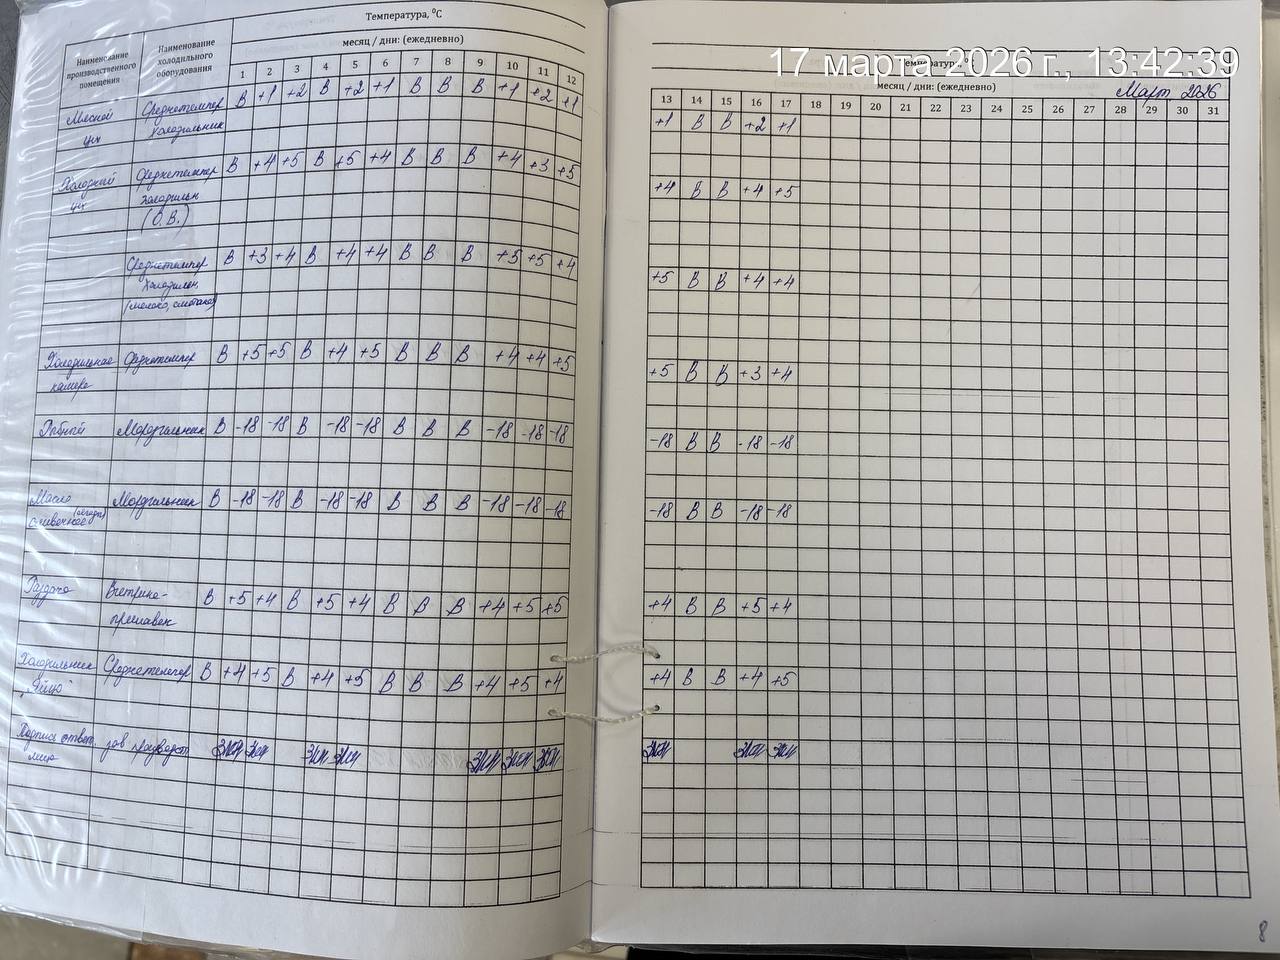 Температура, °С
месяц / дни: (ежедневно)
Наименование производственного помещения
Наименование холодильного оборудования
1 2 3 4 5 6 7 8 9 10 11 12
Мясной цех Среднетемпер холодильник В +1 +2 В +2 +1 В В В +1 +2 +1
Холодный цех Среднетемпер холодильн (О.В.) В +4 +5 В +5 +4 В В В +4 +3 +5
Среднетемпер холодильн (молоко, сметана) В +3 +4 В +4 +4 В В В +5 +5 +4
Холодильная камера Среднетемпер В +5 +5 В +4 +5 В В В +4 +4 +5
Рыбный Морозильник В -18 -18 В -18 -18 В В В -18 -18 -18
Масло сливочное Морозильник В -18 -18 В -18 -18 В В В -18 -18 -18
Раздача Витрина-прилавок В +5 +4 В +5 +4 В В В +4 +5 +5
Холодильник "Яйцо" Среднетемпер В +4 +5 В +4 +5 В В В +4 +5 +4
Подпись ответ. лица зав производст
17 марта 2026 г., 13:42:39
Температура, °С
месяц / дни: (ежедневно)
Март 2026
13 14 15 16 17 18 19 20 21 22 23 24 25 26 27 28 29 30 31
+1 В В +2 +1
+4 В В +4 +5
+5 В В +4 +4
+5 В В +3 +4
-18 В В -18 -18
-18 В В -18 -18
+4 В В +5 +4
+4 В В +4 +5
8